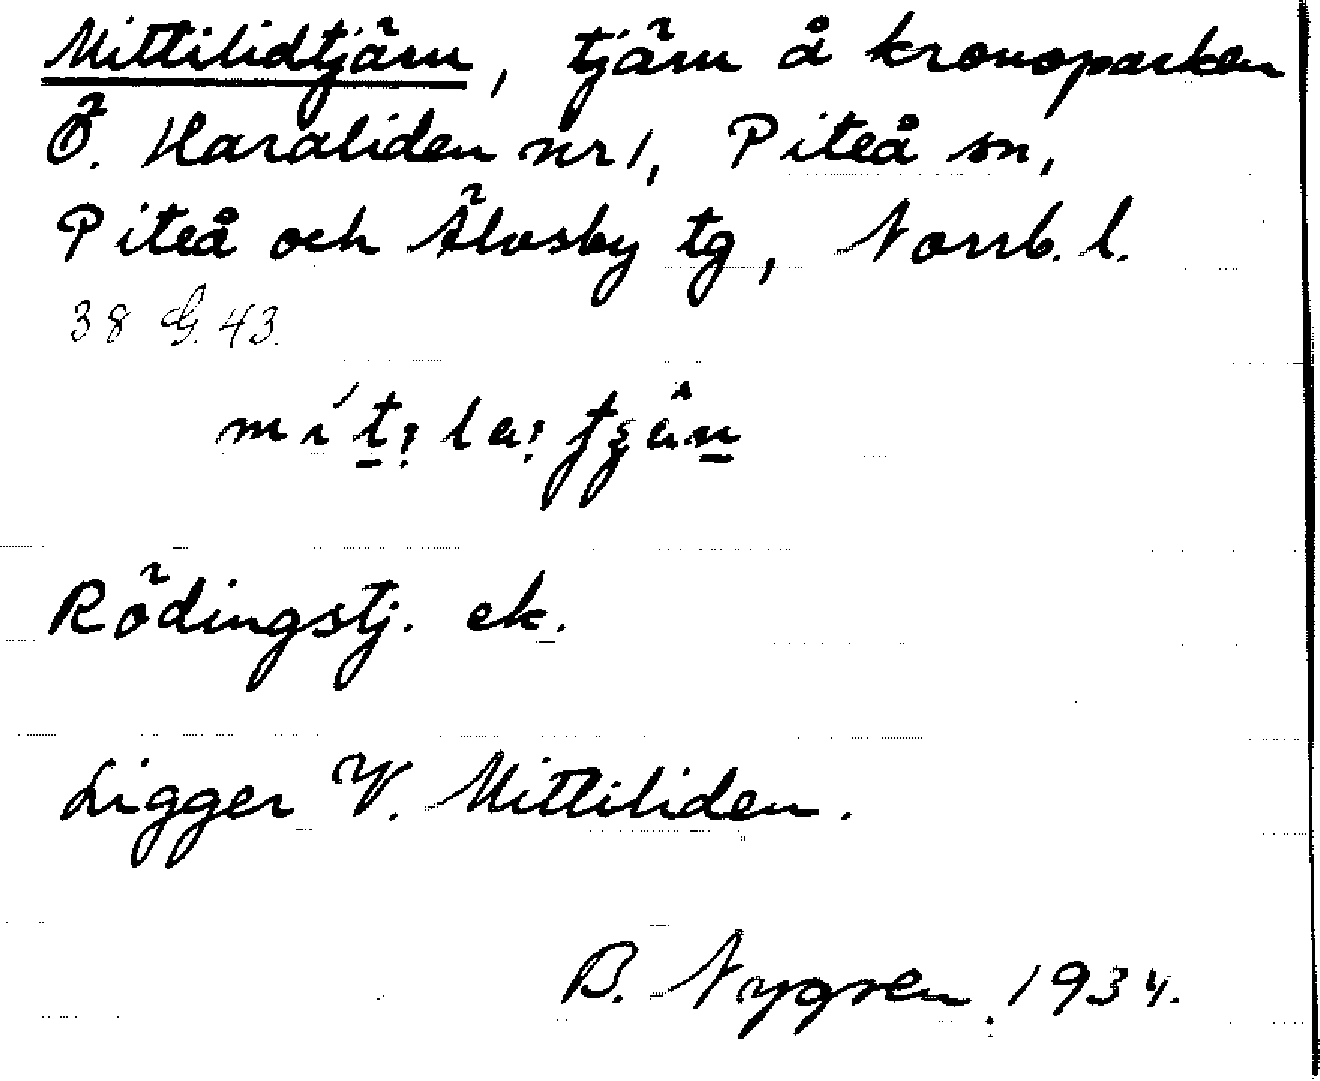 Mittilidtjärn, tjärn å kronoparken
Ö. Haraliden nr 1, Piteå sn,
Piteå och Älvsby tg, Norrb. l.
38 G. 43.
Rödingstj. ek.
Ligger V. Mittiliden.
B. Nygren. 1934.